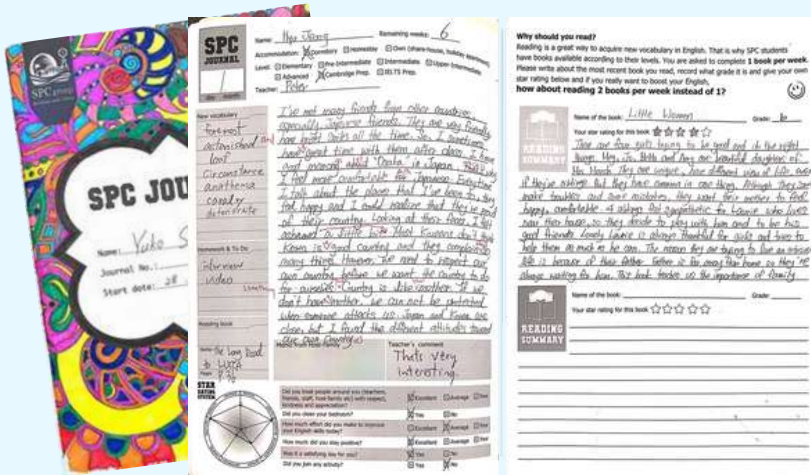 SPC group
SPC JOU
Name: Yuko S
Journal No.:
Start date: 28
SPC
JOURNAL
day month
Name: Jeong Remaining weeks: 6
Accommodation: Dormitory Homestay Own (share-house, holiday apartment)
Level: Elementary Pre-Intermediate Intermediate Upper-Intermediate
Advanced Cambridge Prep. IELTS Prep.
Teacher: Peter
New vocabulary
foremost
astonished
loaf
circumstance
anathema
comply
deteriorate
I've met many friends from other countries,
especially Japanese friends. They are very friendly
and have bright smiles all the time. So, I sometimes
have great time with them after class. I have
and memory about "Osaka" in Japan. That's why
I feel more comfortable for Japanese. Everytime
I talk about the places that I've been to, they
feel happy and I could realize that they're proud
of their country. Looking at their faces, I felt
ashamed a little bit. Most Koreans don't think
Korea is good country and they complain
many things. However, we need to respect our
own country before we want the country to do
for ourselves. Country is like mother. If we
don't have mother, we can not be protected
when someone attacks us. Japan and Korea are
close, but I found the different attitudes toward
our own country.
Homework & To Do
interview
video
Reading book
Name: The Long Road
to LUCCA
Page: P.36
Memo from Host-family
Teacher's comment
That's very
interesting.
STAR
RATING
SYSTEM
Did you treat people around you (teachers,
friends, staff, host family etc) with respect,
kindness and appreciation? Excellent Average Poor
Did you clean your bedroom? Yes No
How much effort did you make to improve
your English skills today? Excellent Average Poor
How much did you stay positive? Excellent Average Poor
Was it a satisfying day for you? Yes No
Did you join any activity? Yes No
Why should you read?
Reading is a great way to acquire new vocabulary in English. That is why SPC students
have books available according to their levels. You are asked to complete 1 book per week.
Please write about the most recent book you read, record what grade it is and give your own
star rating below and if you really want to boost your English.
how about reading 2 books per week instead of 1?
READING
SUMMARY
Name of the book: Little Women Grade: 6
Your star rating for this book
There are four girls trying to be good and do the right
things. Meg, Jo, Beth and Amy are beautiful daughters of
Mrs. March. They are unique, have different view of life, even
if they're sisters. But they have common in one thing. Although they
make troubles and some mistakes, they want their mother to feel
happy, comfortable. 4 sisters feel sympathetic to Laurie who lives
near their house, so they decide to play with him and to be
good friends. Lonely Laurie is always thankful for girls and tries to
help them as much as he can. The reason they are trying to live an
life is because of their father. Father is far away from home, so they're
always waiting for him. This book teaches us the importance of family
READING
SUMMARY
Name of the book: Grade:
Your star rating for this book